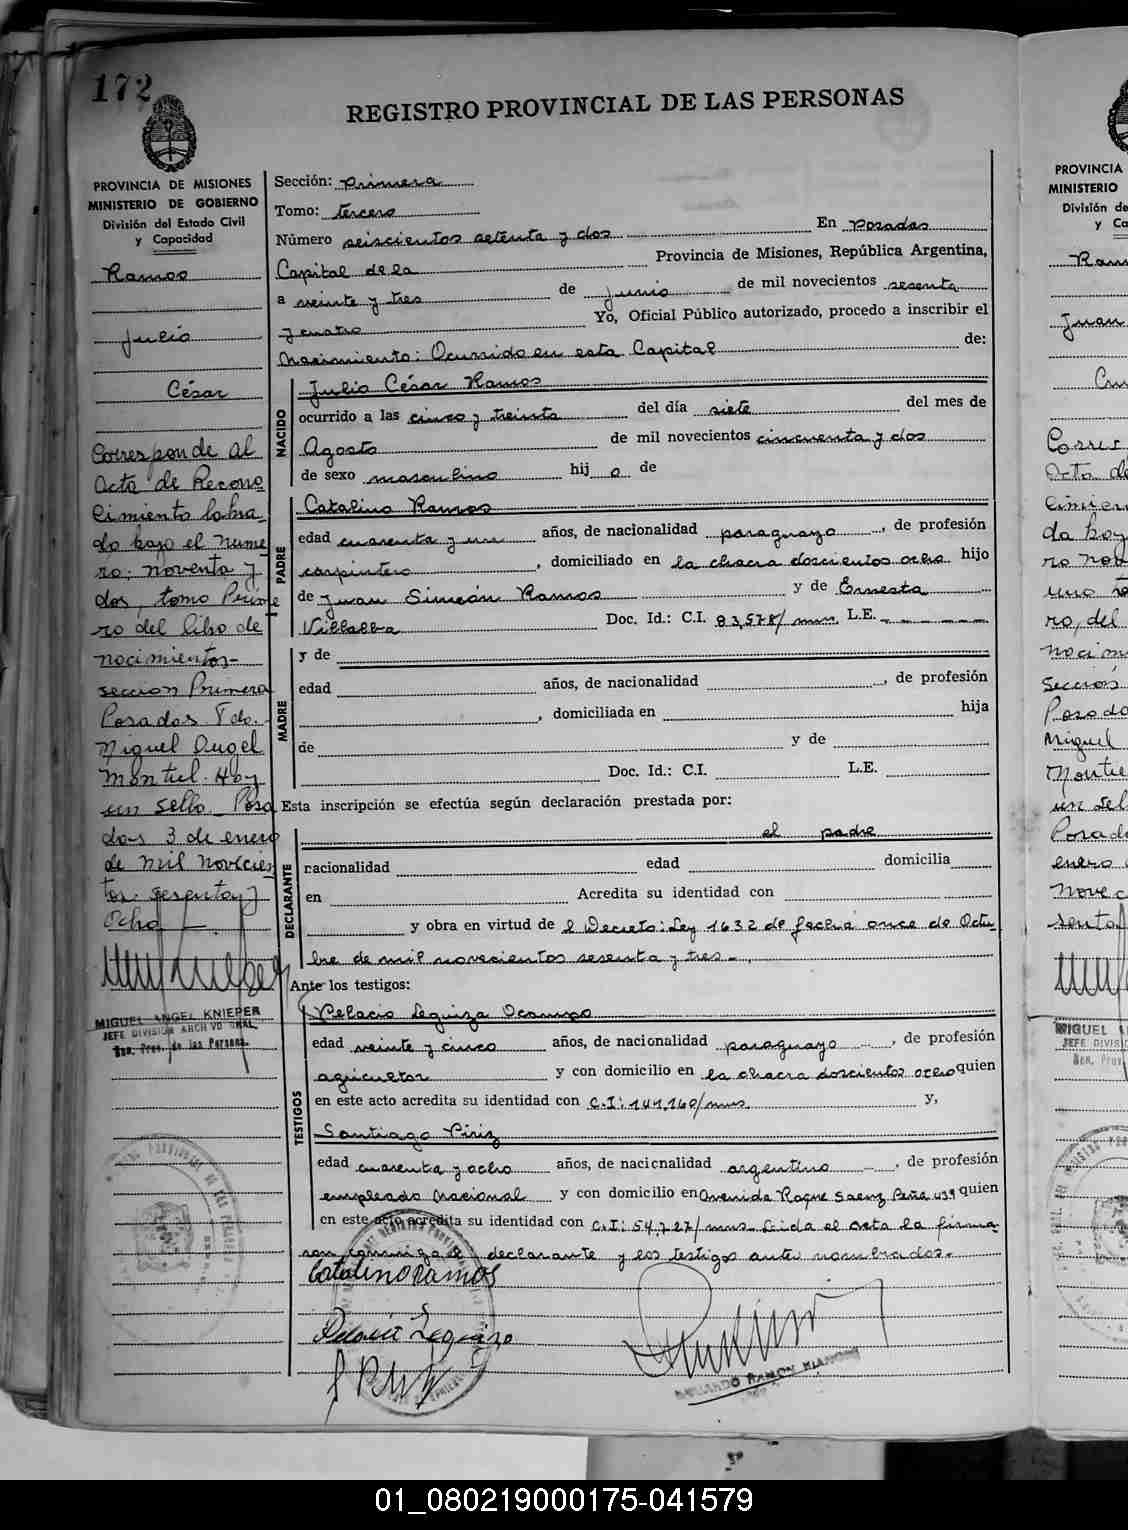 172
REGISTRO PROVINCIAL DE LAS PERSONAS
PROVINCIA DE MISIONES
MINISTERIO DE GOBIERNO
División del Estado Civil
y Capacidad
Ramos
Julio
César
Corresponde al
Acta de Recono
cimiento labra-
do bajo el nume
ro: noventa y
dos, tomo Prime
ro del libro de
nacimientos-
sección Primera
Posadas. Fdo.
Miguel Angel
Montiel. Hay
un sello. Posa
das 3 de enero
de mil novecien
tos sesenta y
Ocho
MIGUEL ANGEL KNIEPER
JEFE DIVISION ARCHIVO GRAL.
Reg. Prov. de las Personas
Sección: primera
Tomo: tercero
Número seiscientos setenta y dos En Posadas
Capital de la Provincia de Misiones, República Argentina,
a veinte y tres de Junio de mil novecientos sesenta
y cuatro Yo, Oficial Público autorizado, procedo a inscribir el
Nacimiento: Ocurrido en esta Capital de:
NACIDO
Julio César Ramos
ocurrido a las cinco y treinta del día siete del mes de
Agosto de mil novecientos cincuenta y dos
de sexo masculino hij o de
PADRE
Catalino Ramos
edad cuarenta y un años, de nacionalidad paraguayo, de profesión
carpintero, domiciliado en la chacra doscientos ocho hijo
de Juan Simeón Ramos y de Ernesta
Villalba Doc. Id.: C.I. 83,578/mnes. L.E.
MADRE
y de
edad años, de nacionalidad, de profesión
, domiciliada en hija
de y de
Doc. Id.: C.I. L.E.
Esta inscripción se efectúa según declaración prestada por:
DECLARANTE
el padre
nacionalidad edad domicilia
en Acredita su identidad con
y obra en virtud de l Decreto: Ley 1632 de fecha once de Octu
bre de mil novecientos sesenta y tres-.
Ante los testigos:
TESTIGOS
Pelacio Leguiza Ocampo
edad veinte y cinco años, de nacionalidad paraguayo, de profesión
agricultor y con domicilio en la chacra doscientos ocho quien
en este acto acredita su identidad con C.I: 141,160/mnes y,
Santiago Píriz
edad cuarenta y ocho años, de nacionalidad argentino, de profesión
empleado nacional y con domicilio en Avenida Roque Saenz Peña 439 quien
en este acto acredita su identidad con C.I: 54,727/mnes. Leida el acta la firma
ron conmigo el declarante y los testigos antes nombrados.-
Catalino Ramos
EDUARDO RAMON
PROVINCIA
MINISTERIO
División de
y Ca
Juan
Posada
Miguel
Posada
enero
MIGUEL
JEFE DIVIS
Reg. Prov.
01_080219000175-041579